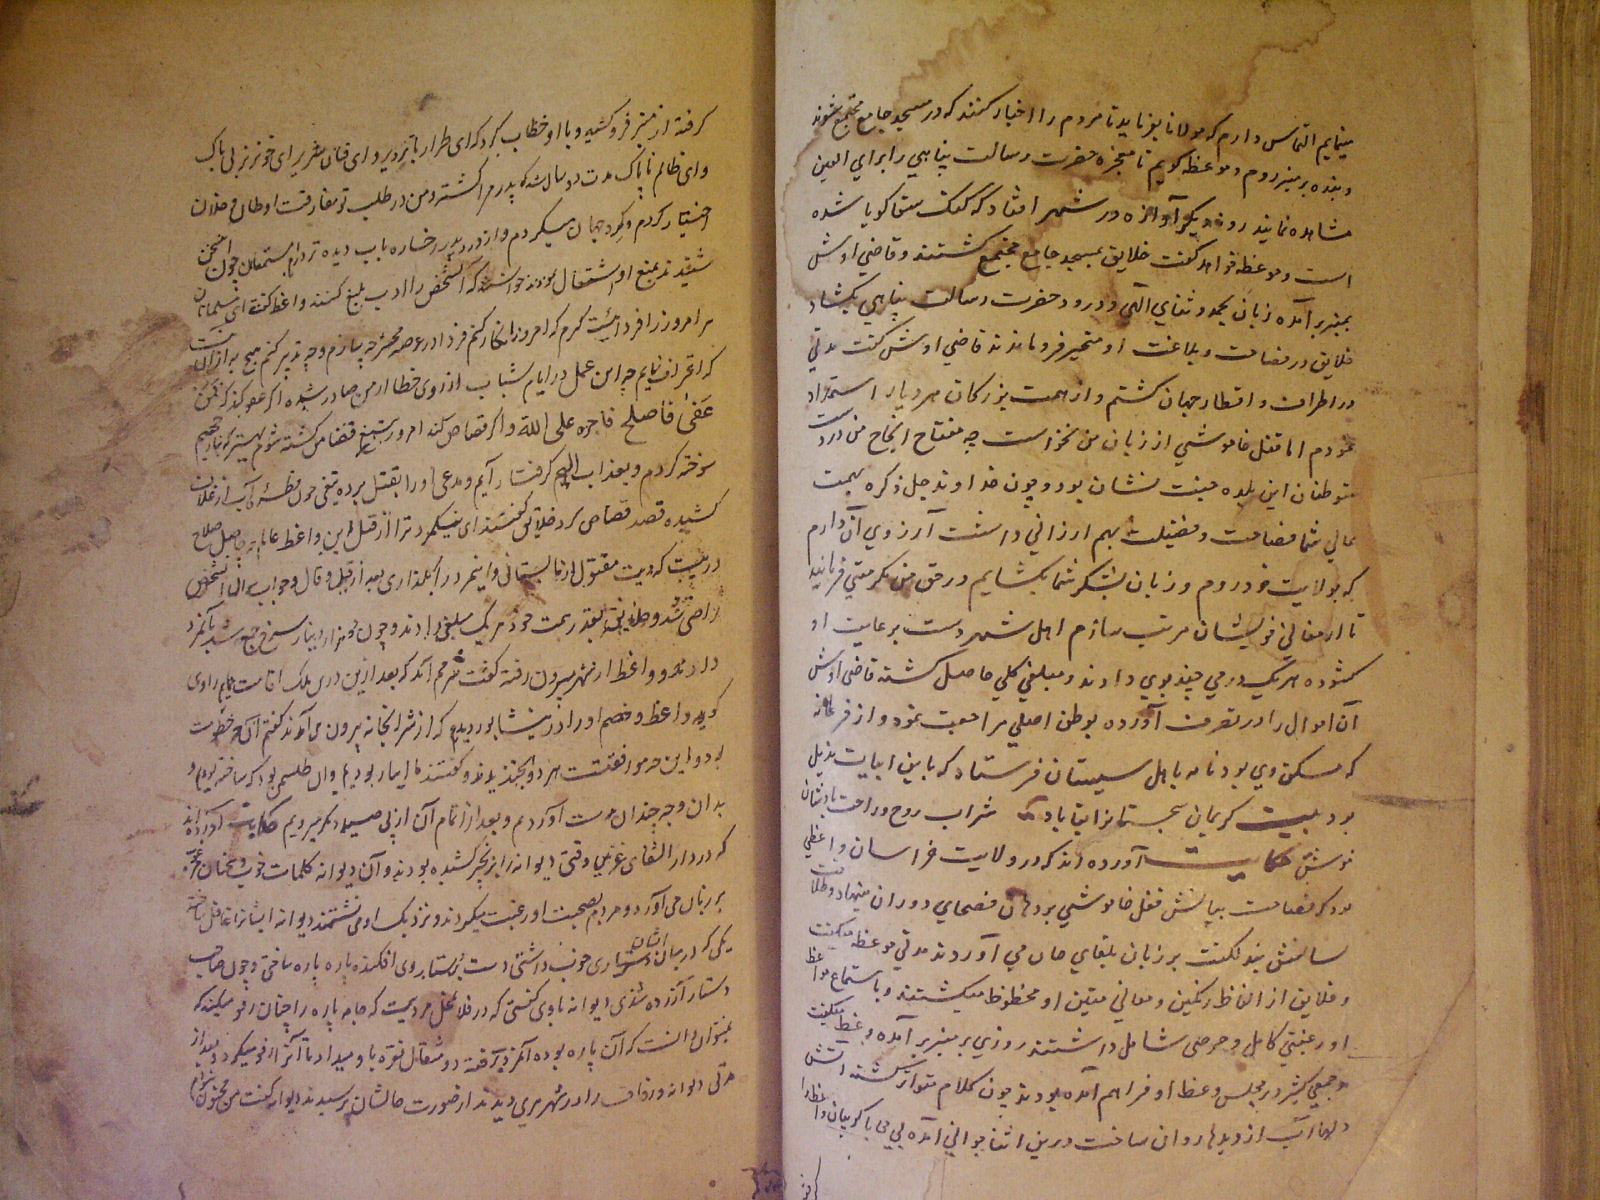 مینمایم التماس دارم که مولانا بفرماید تا مردم را اخبار کنند که در مسجد جامع مجتمع شوند
و بنده بر منبر روم و موعظه گویم تا معجزه حضرت رسالت پناهی را برای العین
مشاهده نمایند روز دیگر آوازه در شهر افتاد که گنگ سقا گویا شده
است و موعظه خواهد گفت خلایق بمسجد جامع مجتمع گشتند و قاضی اوش
بمنبر برآمده زبان بحمد و ثنای الهی و درود حضرت رسالت پناهی بکشاد
خلایق در فصاحت و بلاغت او متحیر فرو ماندند قاضی اوش گفت مدتی
در اطراف و اقطار جهان گشتم و از همت بزرگان هر دیار استمداد
نمودم اما قفل خاموشی از زبان من نخواست چه مفتاح انجاح من در دست
متوطنان این بلده جنت نشان بود و چون خداوند جل ذکره بهمت
عالی شما فصاحت و فضیلت بهم ارزانی داشت آرزوی آن دارم
که بولایت خود روم و زبان بشکر شما بکشایم در حق من مکرمتی فرمائید
تا ارمغانی خویشان مرتب سازم اهل شهر دست برعایت او
گشوده هر یک درمی چند بوی دادند و مبلغی کلی حاصل گشته قاضی اوش
آن اموال را در تصرف آورده بوطن اصلی مراجعت نمود و از فرغانه
که مسکن وی بود نامه باهل سیستان فرستاد که باین ابیات مذیل
بود بیت کریمان سجستانرا بقا باد شراب روح و راحت بادشان
نوش حکایت آورده اند که در ولایت خراسان واعظی
بود که فصاحت بیانش قفل خاموشی بر دهان فصحای دوران مینهاد و طلاقت
لسانش بند لکنت بر زبان بلغای جهان می آورد مدتی موعظه میگفت
و خلایق از الفاظ رنگین و معانی متین او محظوظ میگشتند و باستماع مواعظ
او رغبتی کامل و حرصی شامل داشتند روزی بر منبر برآمده وعظ میگفت
و جمعی کثیر در مجلس وعظ او فراهم آمده بودند چون کلام متواتر گشته آتش
دلها آب از دیدها روان ساخت درین اثنا جوانی آمده بی محابا گریبان واعظ را
گرفته
گرفته از منبر فرو کشید و با او خطاب کرد که ای طرار با تزویر و ای فتان شریر ای خونریز بی باک
و ای ظالم ناپاک مدت دو سال شد که پدرم را کشته و من در طلب تو مفارقت اوطان و خلان
اختیار کردم و گرد جهان میگردم و از درد پدر رخساره بآب دیده تر دارم مستمعان چون این سخن
شنیدند بمنع او اشتغال نمودند خواستند که آن شخص را ادب بلیغ کنند واعظ گفت ای مسلمانان
هر امروز را فردائیست گیرم که امروز انکار کنم فردا در عرصه محشر چه سازم و چه تدبیر کنم هیچ به از آن نیست
که اعتراف نمایم چه این عمل در ایام شباب از روی خطا از من صادر شده اگر عفو کند که فمن
عفی فاصلح فاجره علی الله و اگر قصاص کند امروز بتیغ قصاص کشته شوم بهتر که بنار جحیم
سوخته گردم و بعذاب الیم گرفتار آیم و مدعی او را بقتل برده تیغی چون قطره آب از غلاف
کشیده قصد قصاص کرد خلایق گفتند ای نیکمرد ترا از قتل این واعظ عالم چه حاصل صلاح
در نیست که دیت مقتول از ما بستانی و این مرد را بگذاری بعد از قیل و قال و جواب و سوال آن شخص
راضی شد و خلایق بقدر همت خود هر یک مبلغی دادند و چون دو هزار دینار سرخ جمع شد بآنمرد
دادند و واعظ از شهر بیرون رفته گفت شرمم آید که بعد ازین درین ملک اقامت نمایم راوی
گوید واعظ و خصم او را در نیشابور دیدم که از شرابخانه بیرون می آمدند گفتم آن چه خصومت
بود و این چه موافقتست هر دو بخندیدند و گفتند ما یار بودیم و آن طلسمی بود که ساخته بودیم و
بدان وجه چندان بدست آوردیم و بعد از اتمام آن از پی صید دیگر میرویم حکایت آورده اند
که در دار الشفای غزنی وقتی دیوانه را زنجیر کشیده بودند و آن دیوانه کلمات خوب و سخنان
بر زبان می آورد و مردم بصحبت او رغبت میکردند و نزدیک او می نشستند دیوانه ایشانرا غافل ساخته
یکی که در میان ایشان دستاری خوب داشتی دست بدستار وی افکنده پاره پاره ساختی و چون صاحب
دستار آزرده شدی دیوانه با وی گفتی که در فلان محل مردیست که جامه پاره را چنان رفو میکند که
نتوان دانست که آن پاره بوده آنمرد رفته دو مثقال نقره باو میداد تا آنرا رفو میکرد و بعد از
مدتی دیوانه و رفوگر را در شهر مری دیدند از صورت حالشان پرسیدند دیوانه گفت من مجنون نیم